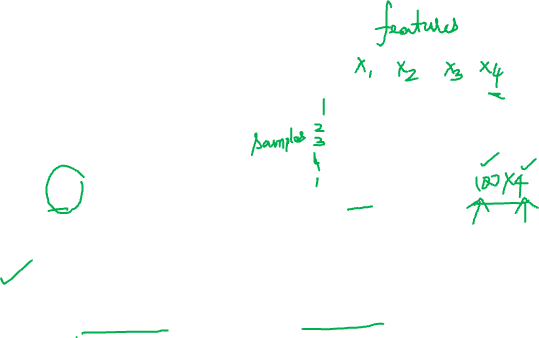 features
x₁ x₂ x₃ x₄
1
2
samples 3
4
100×4